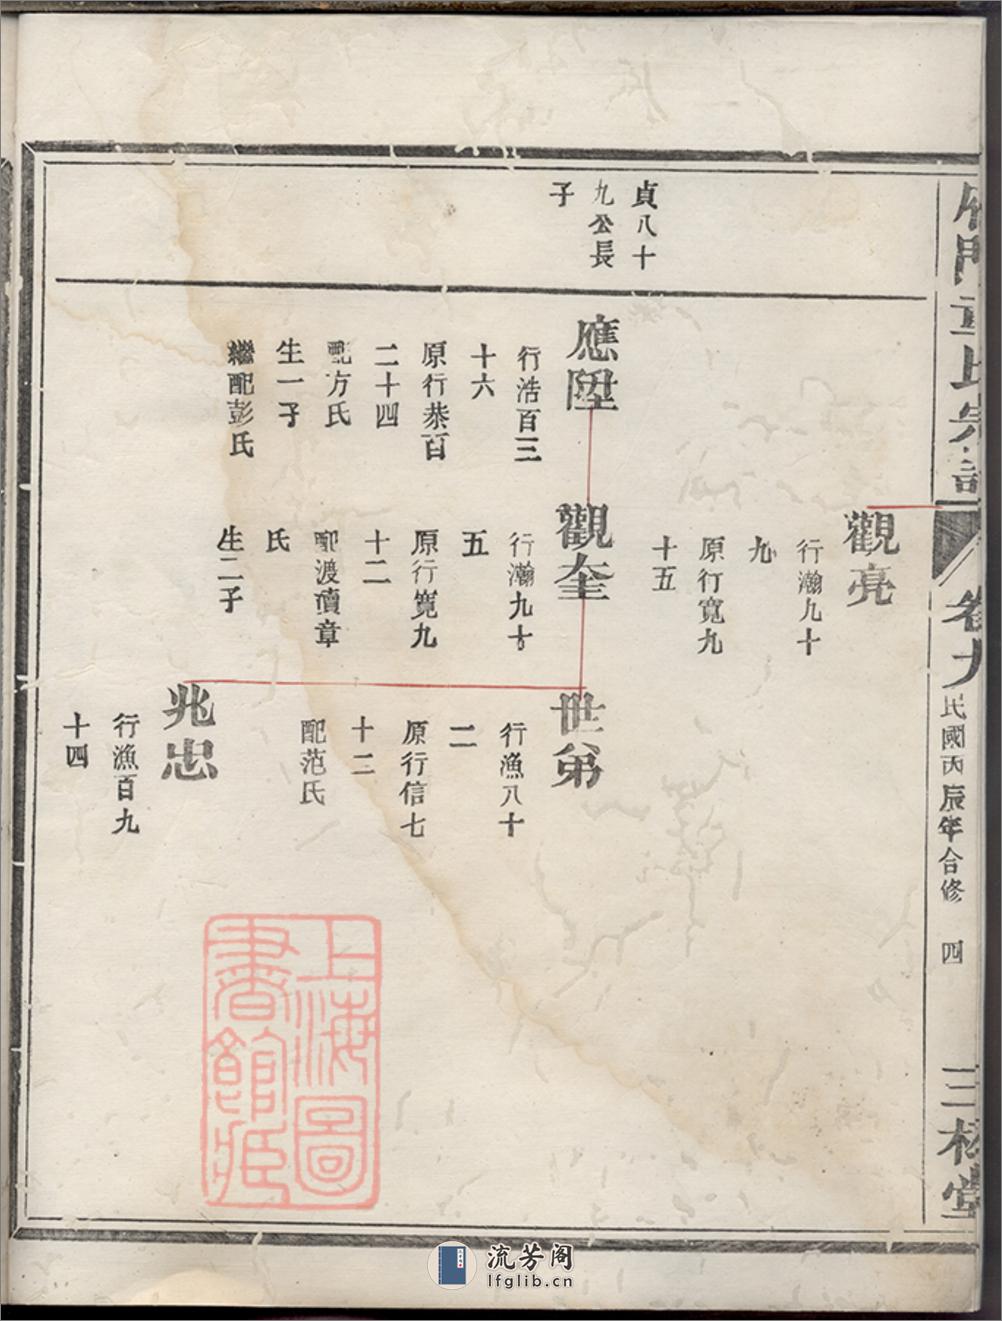 雁門童氏宗譜
卷九
民國丙辰年合修
四
三林堂
貞八十
九公長
子
觀亮
行瀚九十
九
原行寬九
十五
應陞
行浩百三
十六
原行恭百
二十四
配方氏
生一子
繼配彭氏
觀奎
行瀚九十
五
原行寬九
十二
配渡瀆章
氏
生二子
世弟
行漁八十
二
原行信七
十二
配范氏
兆忠
行漁百九
十四
上海圖
書館藏
流芳阁
lfglib.cn